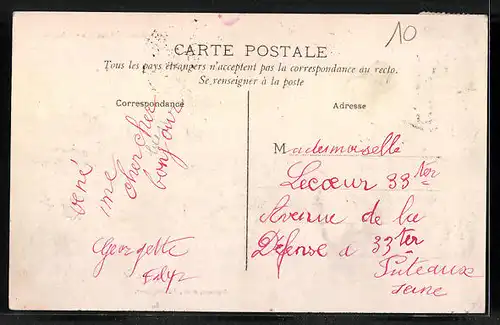 10
CARTE POSTALE
Tous les pays étrangers n'acceptent pas la correspondance au recto.
Se renseigner à la poste
Correspondance
Adresse
vené
me
chercher
bonjour
Georgette
Mademoiselle
Lecœur 33 ter
Avenue de la
Défense à 33 ter
Puteaux
Seine